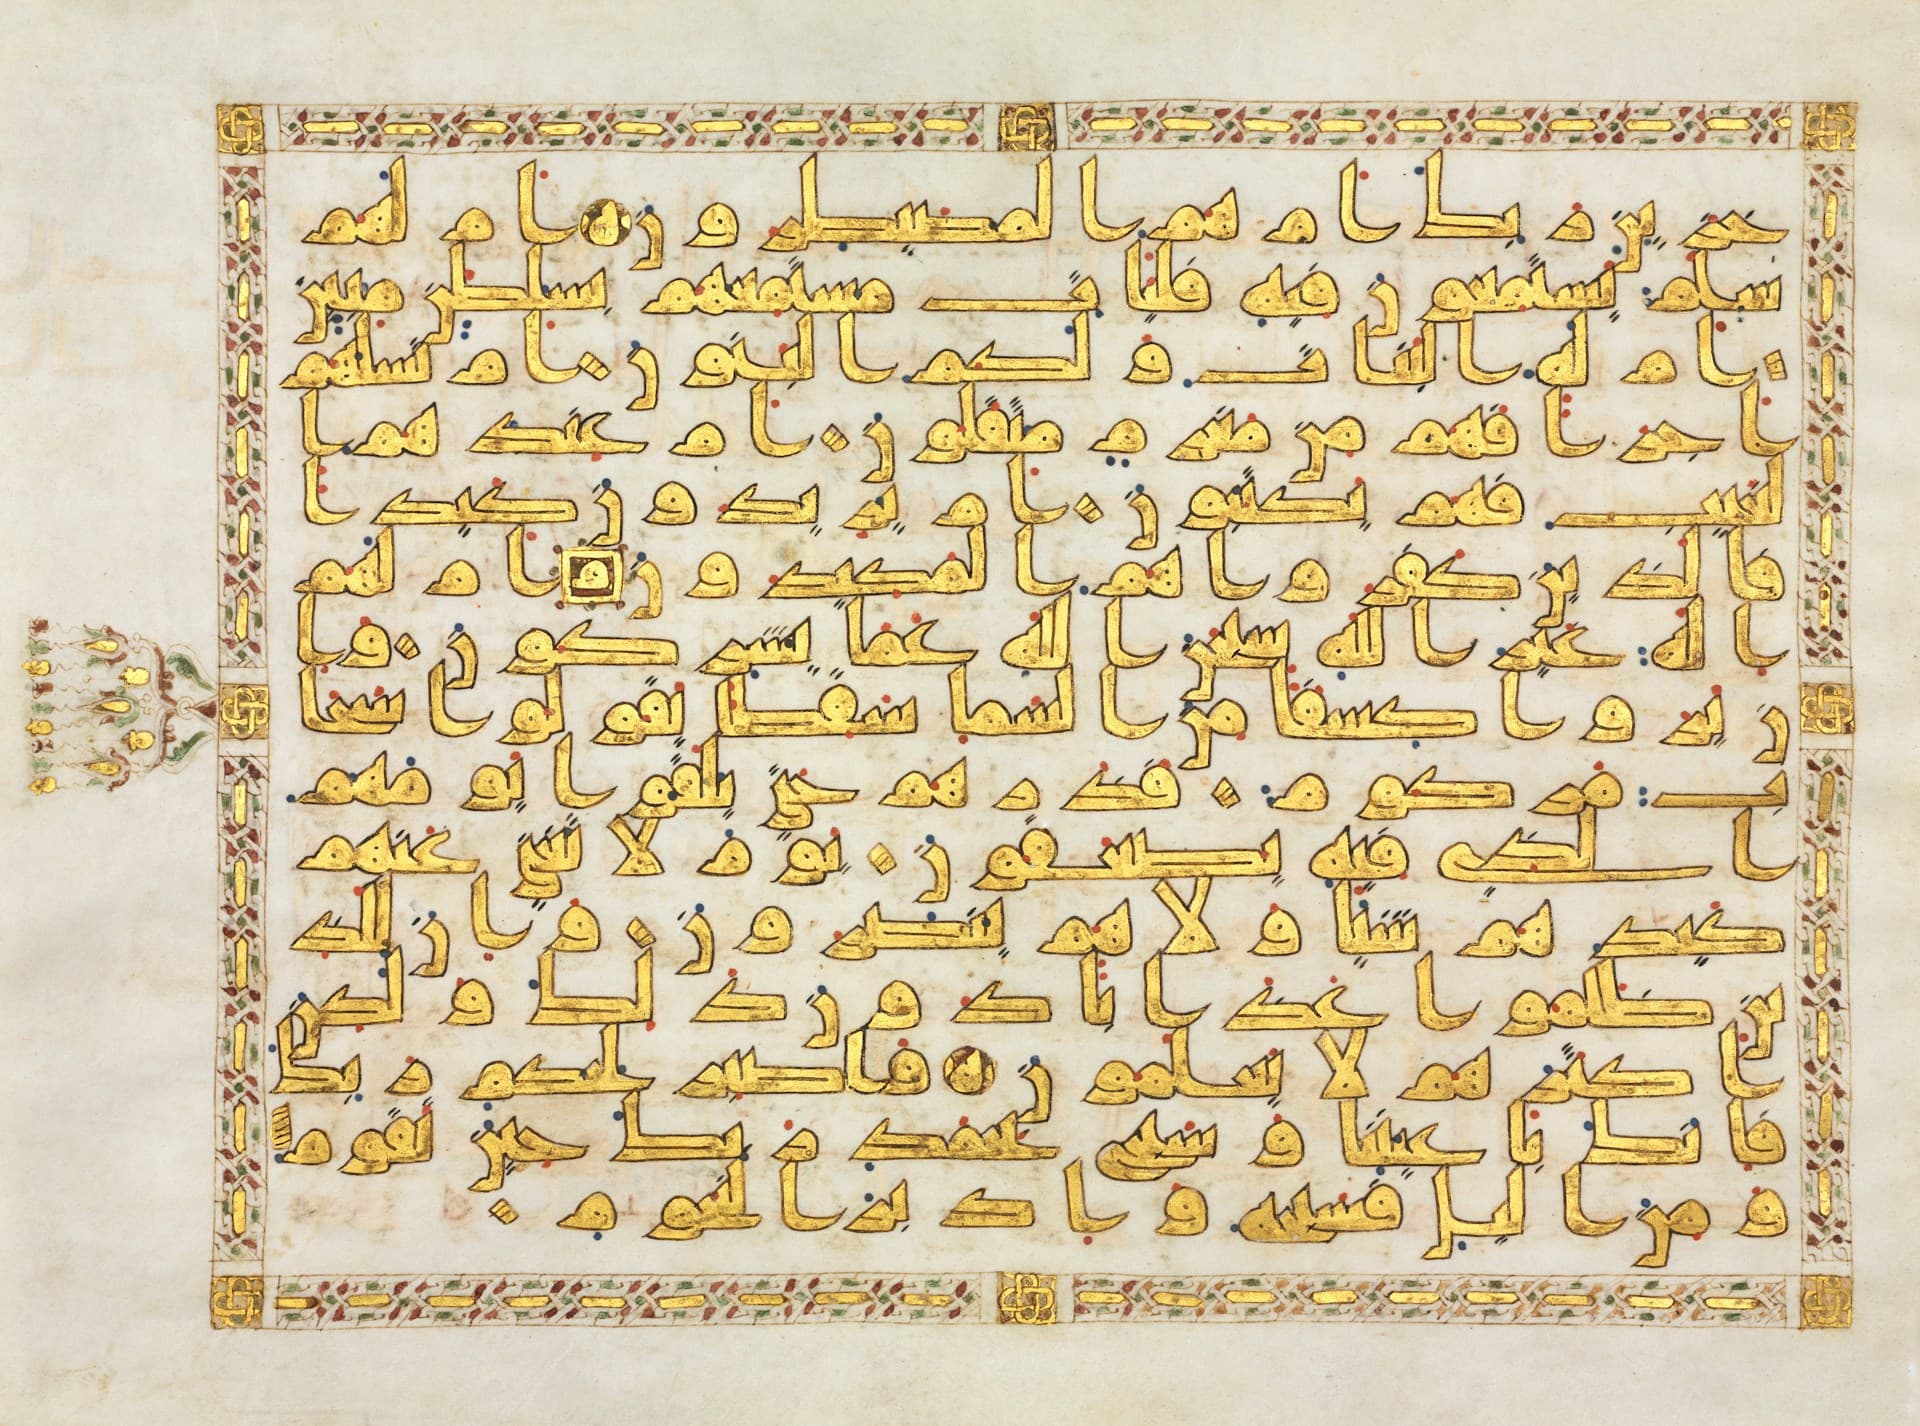 خزين ربك ام هم المصيطرون ام لهم
سلم يستمعون فيه فليات مستمعهم بسلطن مبين
ام له البنات ولكم البنون ام تسلهم
اجرا فهم من مغرم مثقلون ام عندهم ا
لغيب فهم يكتبون ام يريدون كيدا
فالذين كفروا هم المكيدون ام لهم
اله غير الله سبحن الله عما يشركون وا
ن يروا كسفا من السما سقطا يقولوا سحا
ب مركوم فذرهم حتى يلقوا يومهم
الذي فيه يصعقون يوم لا يغني عنهم
كيدهم شيا ولا هم ينصرون وان للذ
ين ظلموا عذابا دون ذلك ولكن
اكثرهم لا يعلمون واصبر لحكم ربك
فانك باعيننا وسبح بحمد ربك حين تقوم
ومن اليل فسبحه وادبر النجوم